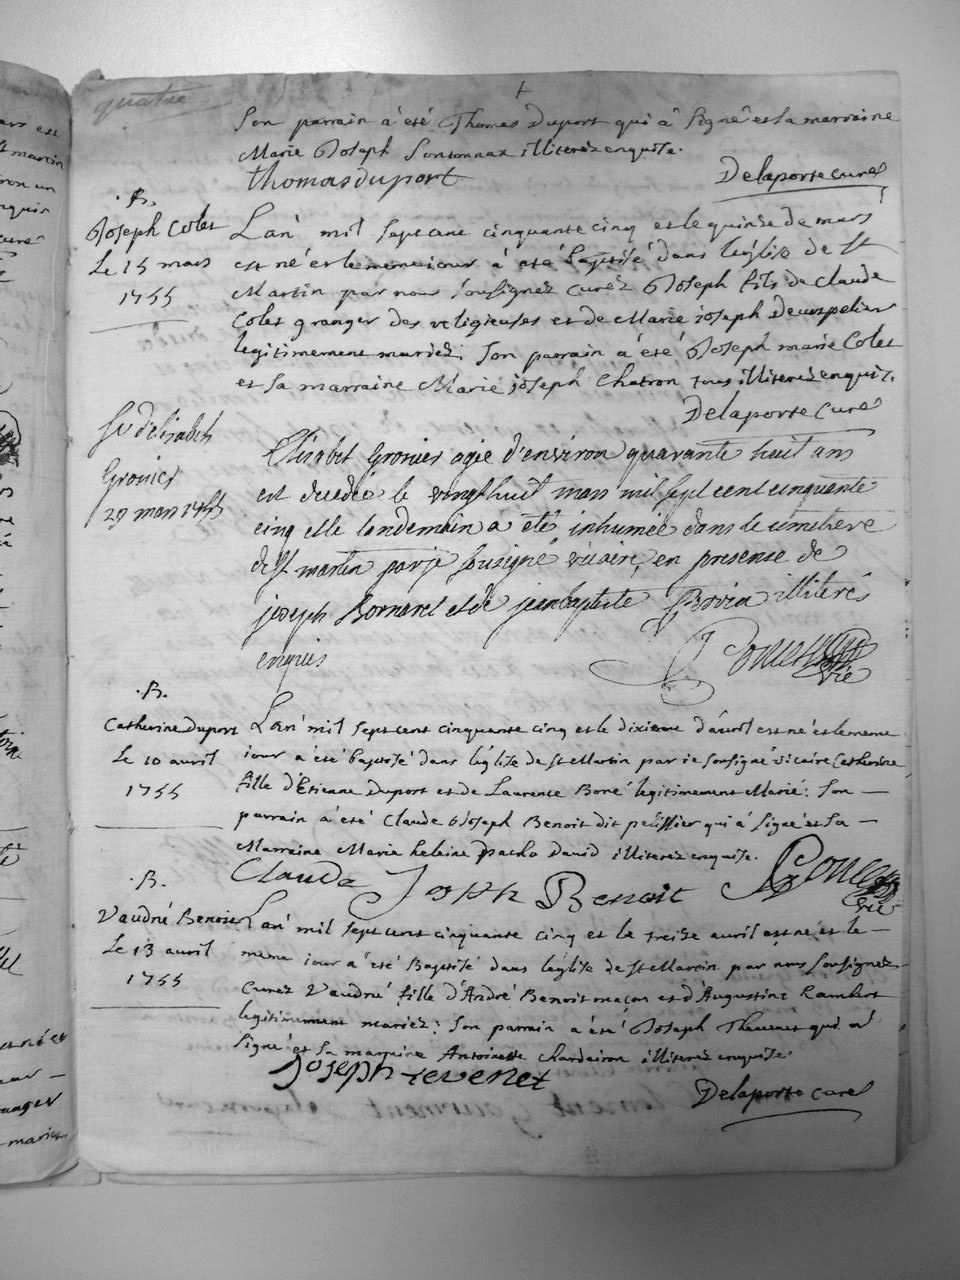 quatre
Son parrain à été Thomas Duport qui à signé et la marraine
Marie Joseph illiterez enquise.
thomas duport
Delaporte curé
.B.
Joseph Colet
Le 15 mars
1755
L'an mil sept cent cinquante cinq et le quinze de mars
est né et le meme jour à été baptisé dans l'église de St
Martin par nous soussignez curéz Joseph fils de Claude
Colet granger des religieuses et de Marie joseph
legitimement mariez. Son parrain à été Joseph marie Colet
et sa marraine Marie joseph Chatron tous illiterez enquis.
Delaporte Curé
Grosier
29 mars 1755
Elisabet Grosier agée d'environ quarante huit ans
est decedée le vingthuit mars mil sept cent cinquente
cinq et le landemain a été inhumée dans le cimetiere
de st martin par je sousigné vicaire, en presense de
joseph Bornarel et de jeanbaptiste illiterés
enquis
vic
.B.
Catherine Duport
Le 10 avril
1755
L'an mil sept cent cinquante cinq et le dixieme d'avril est né et le meme
jour à été baptisé dans l'église de St Martin par je sousigné vicaire Catherine
fille d'Etienne Duport et de Laurence Borré legitimement Marié: Son
parrain à été Claude Joseph Benoit dit pelissier qui à signé et sa
Marraine Marie heleine David illiterez enquise.
Claude Joseph Benoit
vic
.B.
Vaudré Benoit
Le 13 avril
1755
L'an mil sept cent cinquante cinq et le treize avril est né et le
meme jour à été Baptisé dans l'église de St Martin par nous soussignez
Curez Vaudré fille d'André Benoit maçon et d'Augustine Rambert
legitimement mariez: Son parrain à été Joseph Thevenet qui a
signé et sa marraine Antoinette Chardeiron illiterez enquise.
Joseph tevenet
Delaporte curé